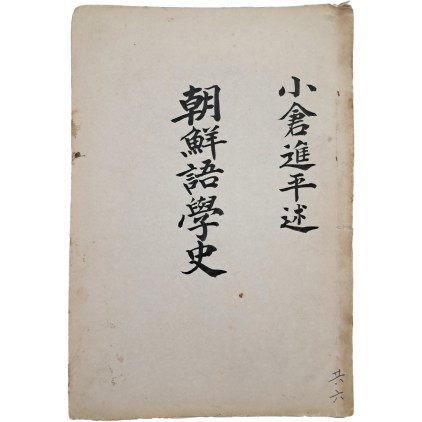 小倉進平述
朝鮮語學史